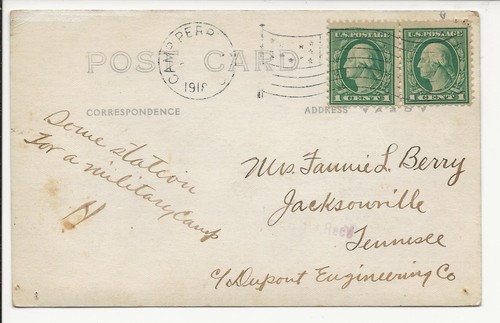 POST CARD
CAMP PERR
1918
U.S. POSTAGE U.S. POSTAGE
1 CENT 1 1 CENT 1
CORRESPONDENCE ADDRESS
Some station
For a military Camp
Mrs. Fannie L. Berry
Jacksonville
Tennesee
c/o Dupont Engineering Co